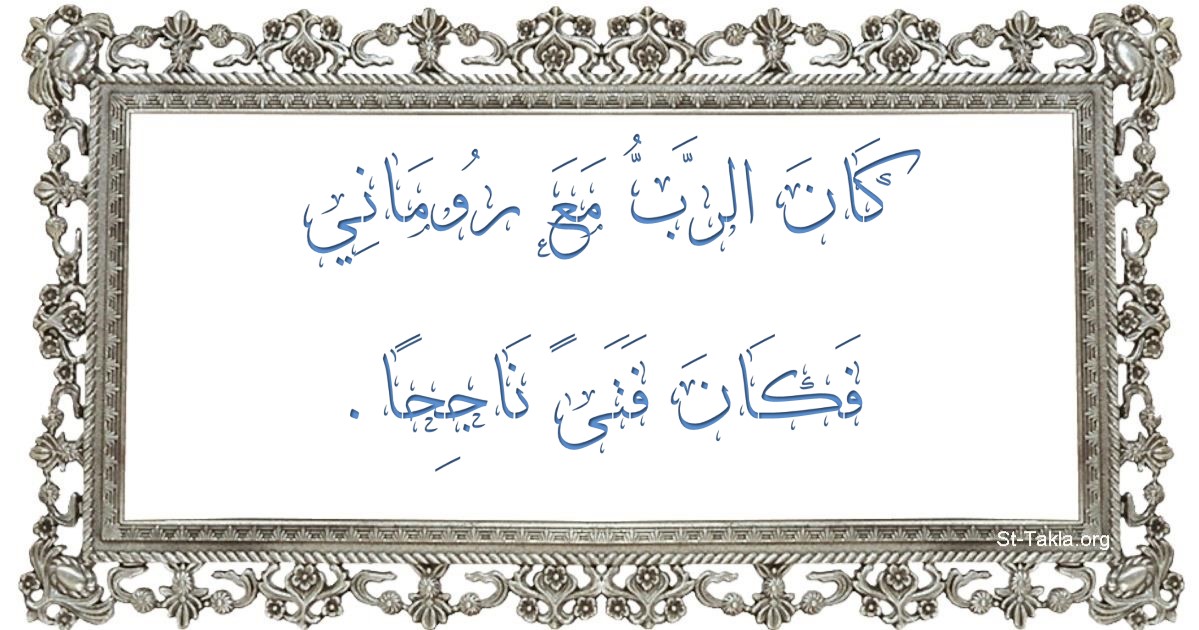 كَانَ الرَّبُّ مَعَ رُومَانِي
فَكَانَ فَتَىً نَاجِحًا.
St-Takla.org